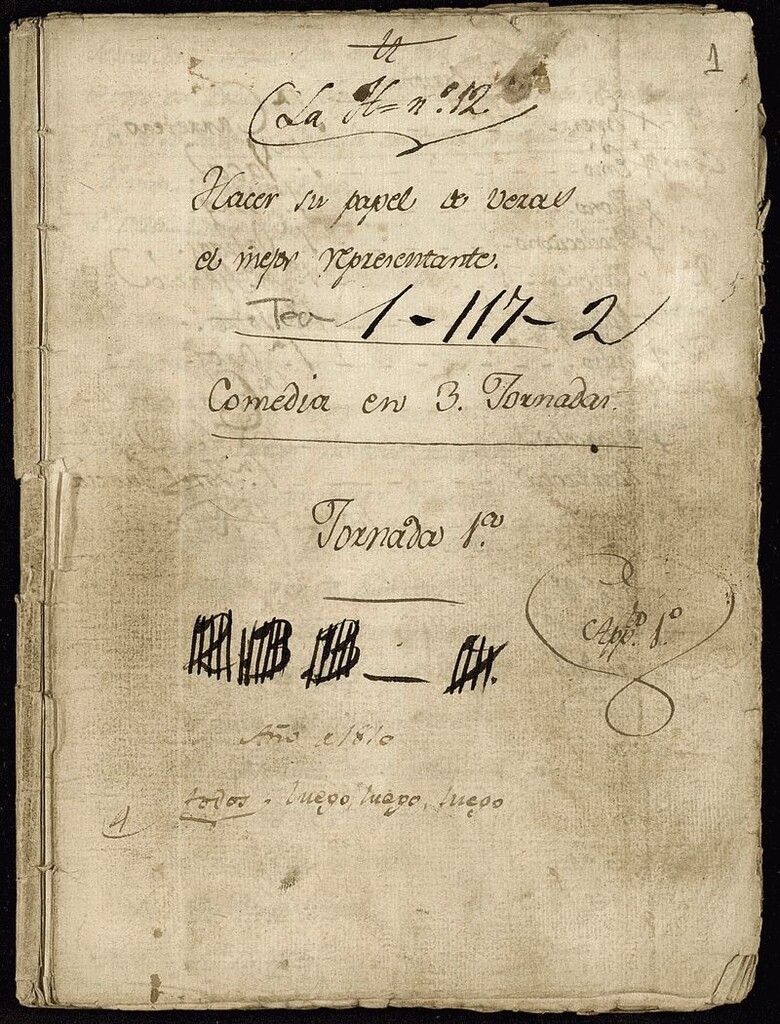 1
La H= nº. 12
Hacer su papel de veras
el mejor representante.
Tea 1-117-2
Comedia en 3. Jornadas.
Jornada 1.ª
App.to 1.º
Año de 1810
todos. luego, luego, luego
4